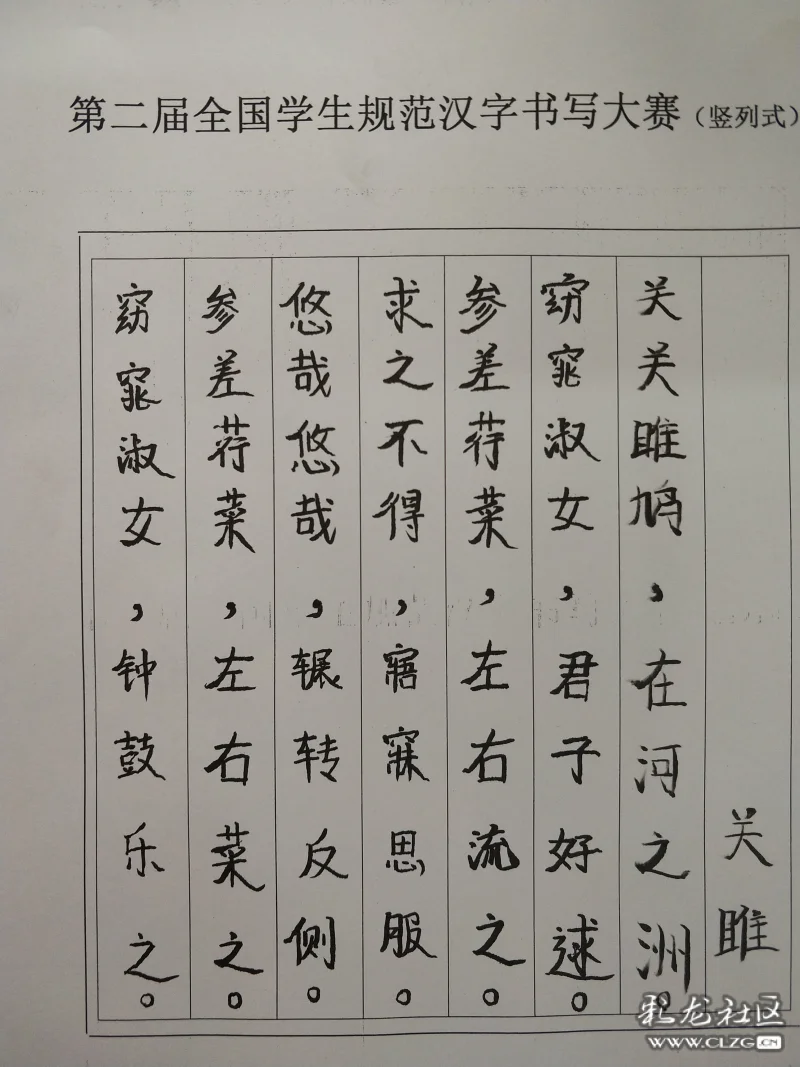 第二届全国学生规范汉字书写大赛（竖列式）
关雎
关关雎鸠，在河之洲。
窈窕淑女，君子好逑。
参差荇菜，左右流之。
求之不得，寤寐思服。
悠哉悠哉，辗转反侧。
参差荇菜，左右菜之。
窈窕淑女，钟鼓乐之。
彩龙社区
WWW.CLZG.CN